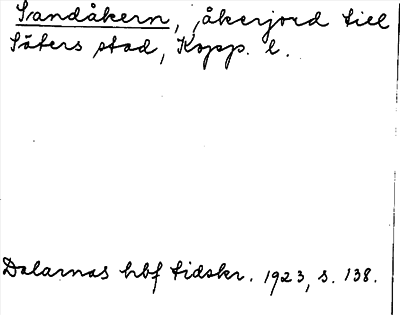 Sandåkern, åkerjord till
Säters stad, Kopp. l.
Dalarnas hbf tidskr. 1923, s. 138.